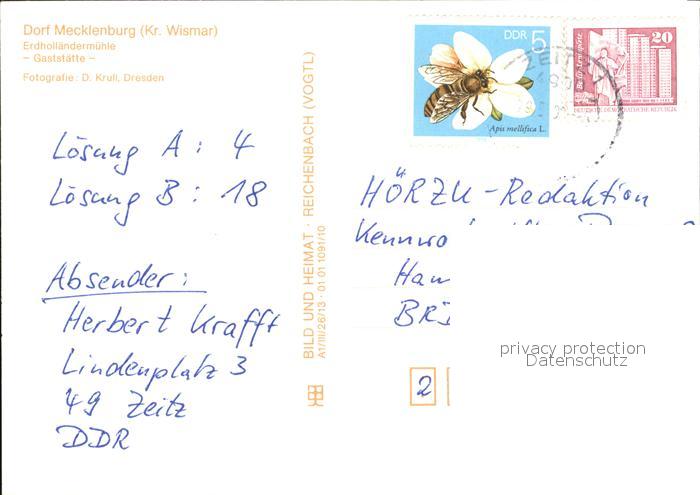 Dorf Mecklenburg (Kr. Wismar)
Erdholländermühle
– Gaststätte –
Fotografie: D. Krull, Dresden
DDR 5
Apis mellifica L.
20
DEUTSCHE DEMOKRATISCHE REPUBLIK
ZEITZ
Lösung A: 4
Lösung B: 18
Absender:
Herbert Krafft
Lindenplatz 3
49 Zeitz
DDR
BILD UND HEIMAT · REICHENBACH (VOGTL)
A1/III/26/13 · 01 01 1091/10
HÖRZU-Redaktion
Kennwo
Ham
BR
2
privacy protection
Datenschutz